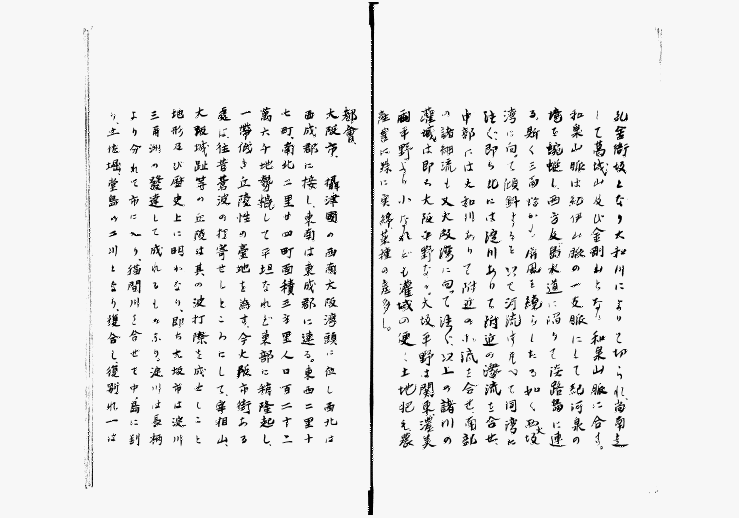 孔舎衙坂となり大和川によりて切られ、尚南走
して葛城山及び金剛山となり和泉山脈に合す。
和泉山脈は紀伊山脈の一支脈にして紀河泉の
境を蜿蜒し西方友島水道に陥りて淡路島に連
る、斯く三面恰かも屏風を繞らしたる如く西大坂
湾に向て傾斜するを以て河流はすべて同湾に
注ぐ、即ち北には淀川ありて附近の渓流を合せ、
中部には大和川ありて附近の小流を合せ、南部
の諸細流も又大阪湾に向て注ぐ、以上の諸川の
灌域は即ち大阪平野なり。大坂平野は関東濃美
両平野より小なれども灌域の便く土地肥え農
産業に殊に実綿菜種の産多し。
都會
大阪市、攝津國の西南大阪湾頭に位し西北は
西成郡に接し、東南は東成郡に連る。東西二里十
七町、南北二里廿四町面積三方里人口百二十二
萬六千地勢概して平坦なれど東部に稍隆起し、
一帯低き丘陵性の臺地を為す、今大阪市街ある
處は、往昔蒼波の打寄せしところにして、宰相山、
大阪城趾等の丘陵は其の波打際を成せしこと
地形及び歴史上に明かなり即ち大坂市は淀川
三角洲の發達して成れるものなり、淀川は長柄
より分れて市に入り猫間川を合せて中、島に到
り、土佐堀堂島の二川となり、復合し、復別れ一は